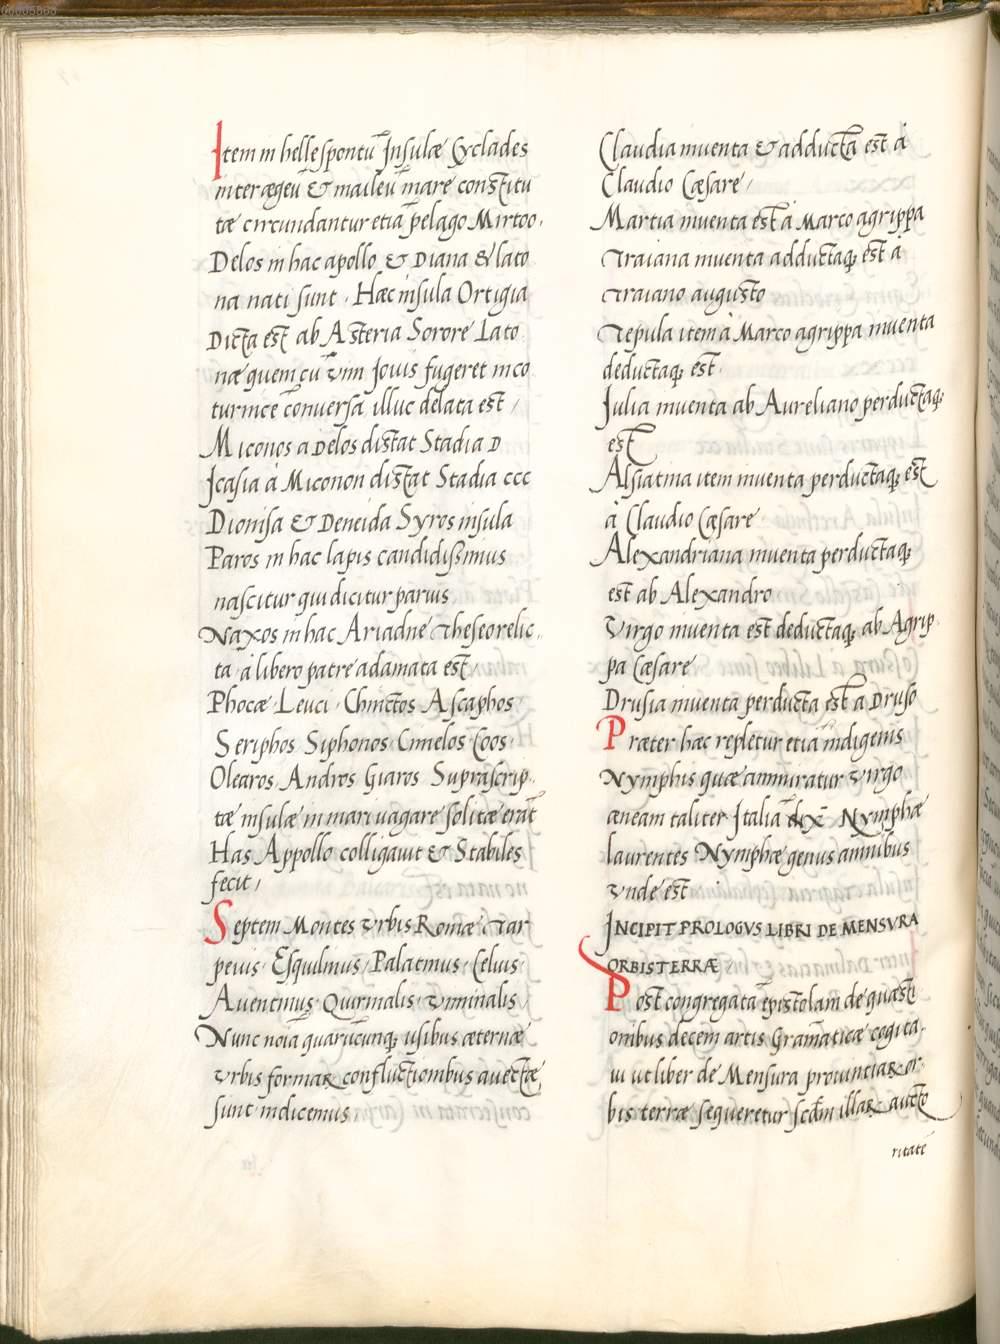 Item in hellespontū Insulæ Cyclades
inter ægeū & maileū mare constitu
tæ circundantur etiā pelago Mirtoo.
Delos in hac apollo & Diana & lato
na nati sunt. Hæc insula Ortigia
Dicta est ab Asteria Sorore Lato
næ quem cū vim Iouis fugeret in co
turnicē conuersa illuc delata est /
Miconos a Delos distat Stadia D
Icasia à Miconon distat Stadia ccc
Dionisa & Deneida Syros insula
Paros in hac lapis candidissimus
nascitur qui dicitur parius
Naxos in hac Ariadne Theseo relic.
ta à libero patre adamata est
Phocæ. Leuci. Chinctos Ascaphos
Seriphos Siphonos. Cimelos. Coos.
Olearos. Andros Giaros Suprascrip.
tæ insulæ in mari uagare solitæ erāt
Has Appollo colligauit & Stabiles
fecit /
Septem Montes vrbis Romæ Tar
peius. Esquilinus, Palatinus. Celius.
Auentinus. Quirinalis. viminalis,
Nunc noīa quarūcunq; usibus æternæ
vrbis formaꝝ confluctionibus auectæ
sunt indicemus
Claudia inuenta & adducta est à
Claudio Cæsare /
Martia inuenta est à Marco agrippa
Traiana inuenta adductaq; est à
Traiano augusto
Tepula item à Marco agrippa inuenta
deductaq; est.
Iulia inuenta ab Aureliano perductaq;
est
Alsiatina item inuenta perductaq; est
à Claudio Cæsare
Alexandriana inuenta perductaq;
est ab Alexandro
Virgo inuenta est deductaq; ab Agrip.
pa Cæsare
Drusia inuenta perducta est a Druso
Præter hæc repletur etiā indigenis
Nymphis quæ ammiratur virgo
æneam taliter Italiā Nymphæ
laurentes Nymphæ genus amnibus
vnde est
INCIPIT PROLOGVS LIBRI DE MENSVRA
ORBIS TERRÆ
Post congregatā epistolam de quæsti
onibus decem artis Gramāticæ cogita.
ui ut liber de Mensura prouintiaꝝ or.
bis terræ sequeretur scd̄m illaꝝ aucto
ritatē